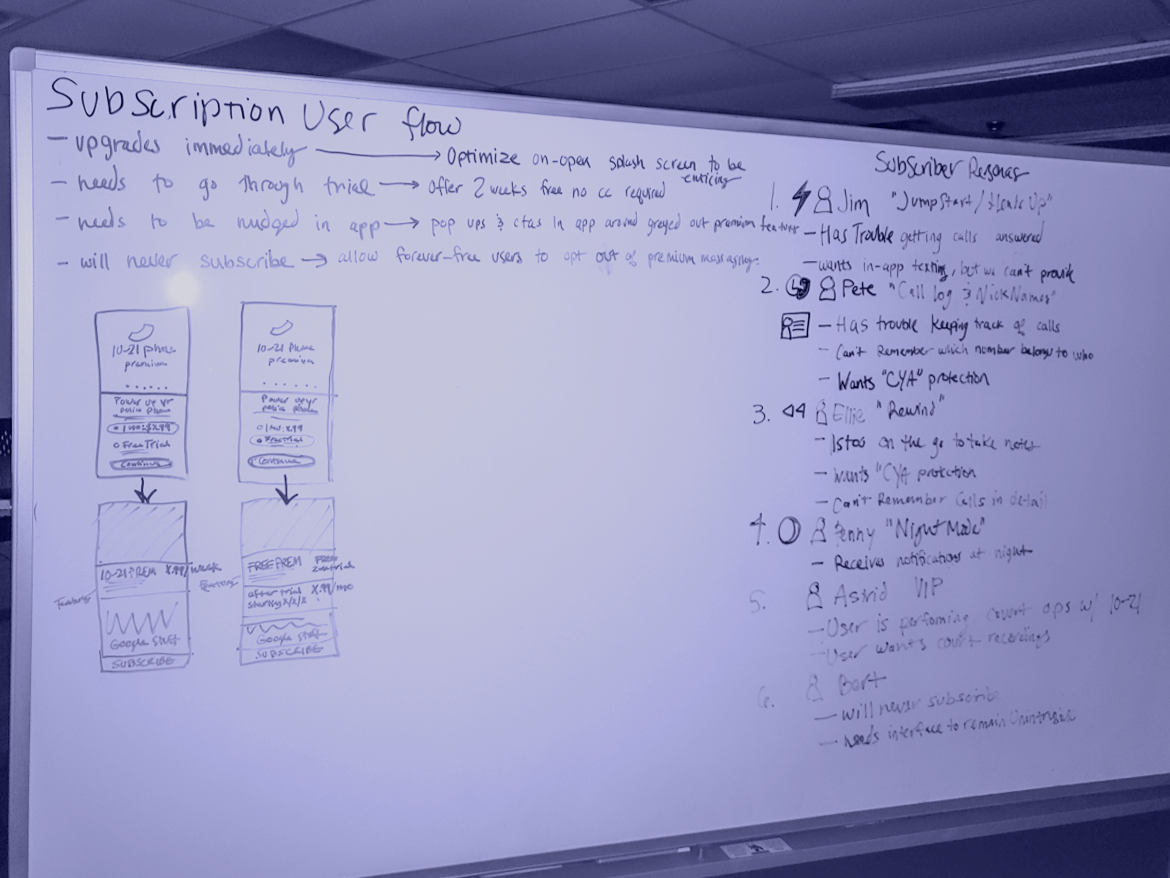 Subscription User flow
- upgrades immediately → Optimize on-open splash screen to be enticing
- needs to go through trial → Offer 2 weeks free no cc required
- needs to be nudged in app → pop ups & ctas in app around greyed out premium features
- will never subscribe → allow forever-free users to opt out of premium messaging.
10-21 Phone
premium
......
Power up yr
police phone
1 mo: $X.99
Free Trial
Continue
10-21 PREM X.99/week
Features
Google stuff
SUBSCRIBE
10-21 Phone
premium
......
Power up yr
police phone
1 mo: X.99
Free Trial
Continue
FREE PREM FREE
2 wk trial
after trial X.99/mo
starting X/X/X
Google stuff
SUBSCRIBE
Subscriber Personas
1. Jim "JumpStart/
- Has Trouble getting calls answered
- wants in-app texting, but we can't provide
2. Pete "Call log & NickNames"
- Has trouble keeping track of calls
- Can't Remember which number belongs to who
- Wants "CYA" protection
3. Ellie "Rewind"
- on the go to take notes
- Wants "CYA protection
- Can't Remember Calls in detail
4. Penny "Night Mode"
- Receives notifications at night
5. Astrid VIP
- User is performing covert ops w/ 10-21
- User wants court recordings
6. Bort
- will never subscribe
- needs interface to remain Unintrusive